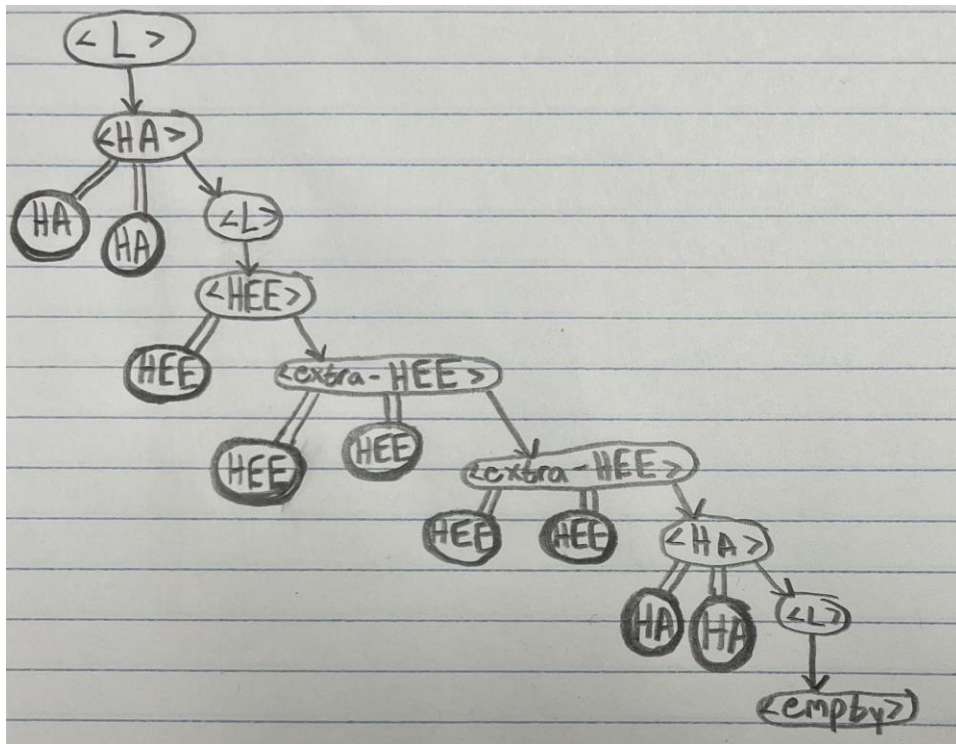 <L>
<HA>
HA
HA
<L>
<HEE>
HEE
<extra-HEE>
HEE
HEE
<extra-HEE>
HEE
HEE
<HA>
HA
HA
<L>
<empty>